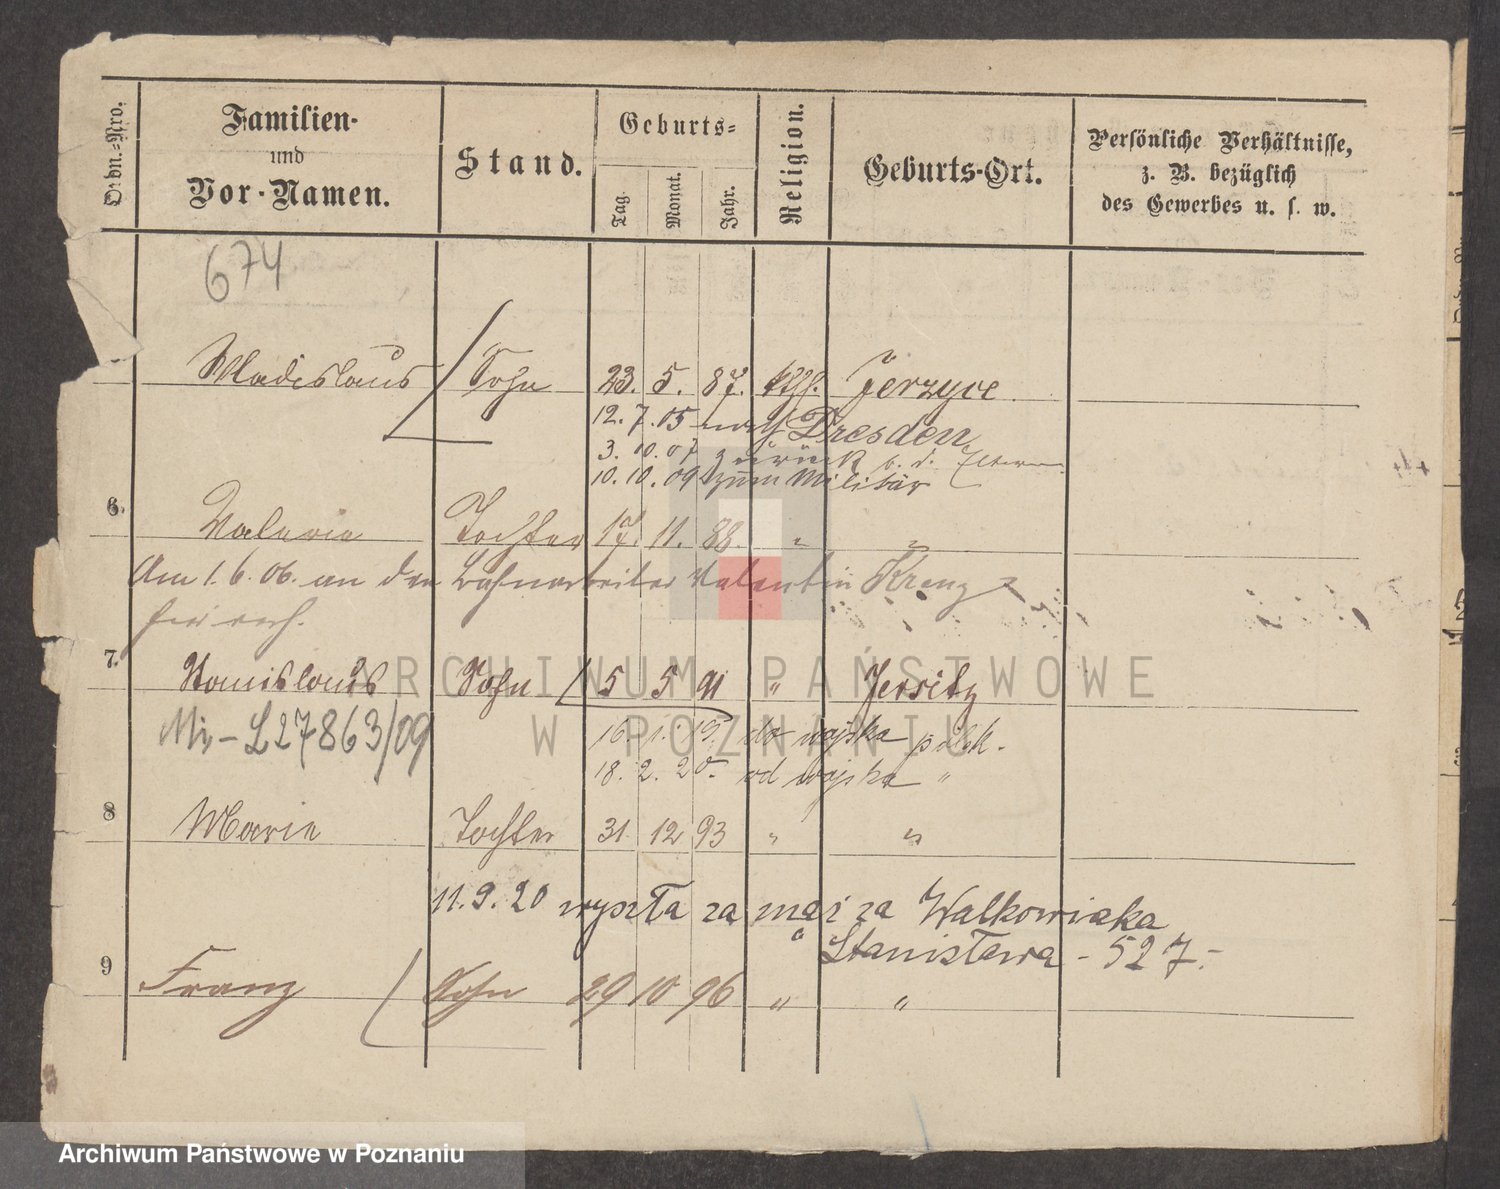 Ordn.-Nro.
Familien-
und
Vor-Namen.
Stand.
Geburts-
Tag.
Monat.
Jahr.
Religion.
Geburts-Ort.
Persönliche Verhältnisse,
z. B. bezüglich
des Gewerbes u. s. w.
674
Wladislaus Sohn 23. 5. 87. kth. Jerzyce
12. 7. 05 nach Dresden
3. 10. 07 zurück b. d. Eltern
10. 10. 09 zum Militär
6. Valerie Tochter 17. 11. 88. " "
Am 1. 6. 06. an den Bahnarbeiter Valentin Krenz
7. Stanislaus Sohn 5 5 91 " Jersitz
L27863/09
16. 1. 19. do wojska polsk.
18. 2. 20. od wojska "
8 Marie Tochter 31 12 93 " "
11. 9. 20 wyszła za mąż za Walkowiaka
Stanisława - 527.-
9 Franz Sohn 29 10 96 " "
ARCHIWUM PAŃSTWOWE
W POZNANIU
Archiwum Państwowe w Poznaniu